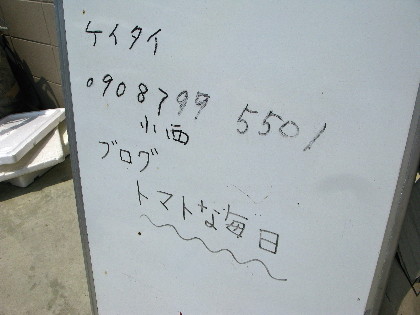 ケイタイ
0908799 5501
小西
ブログ
トマトな毎日